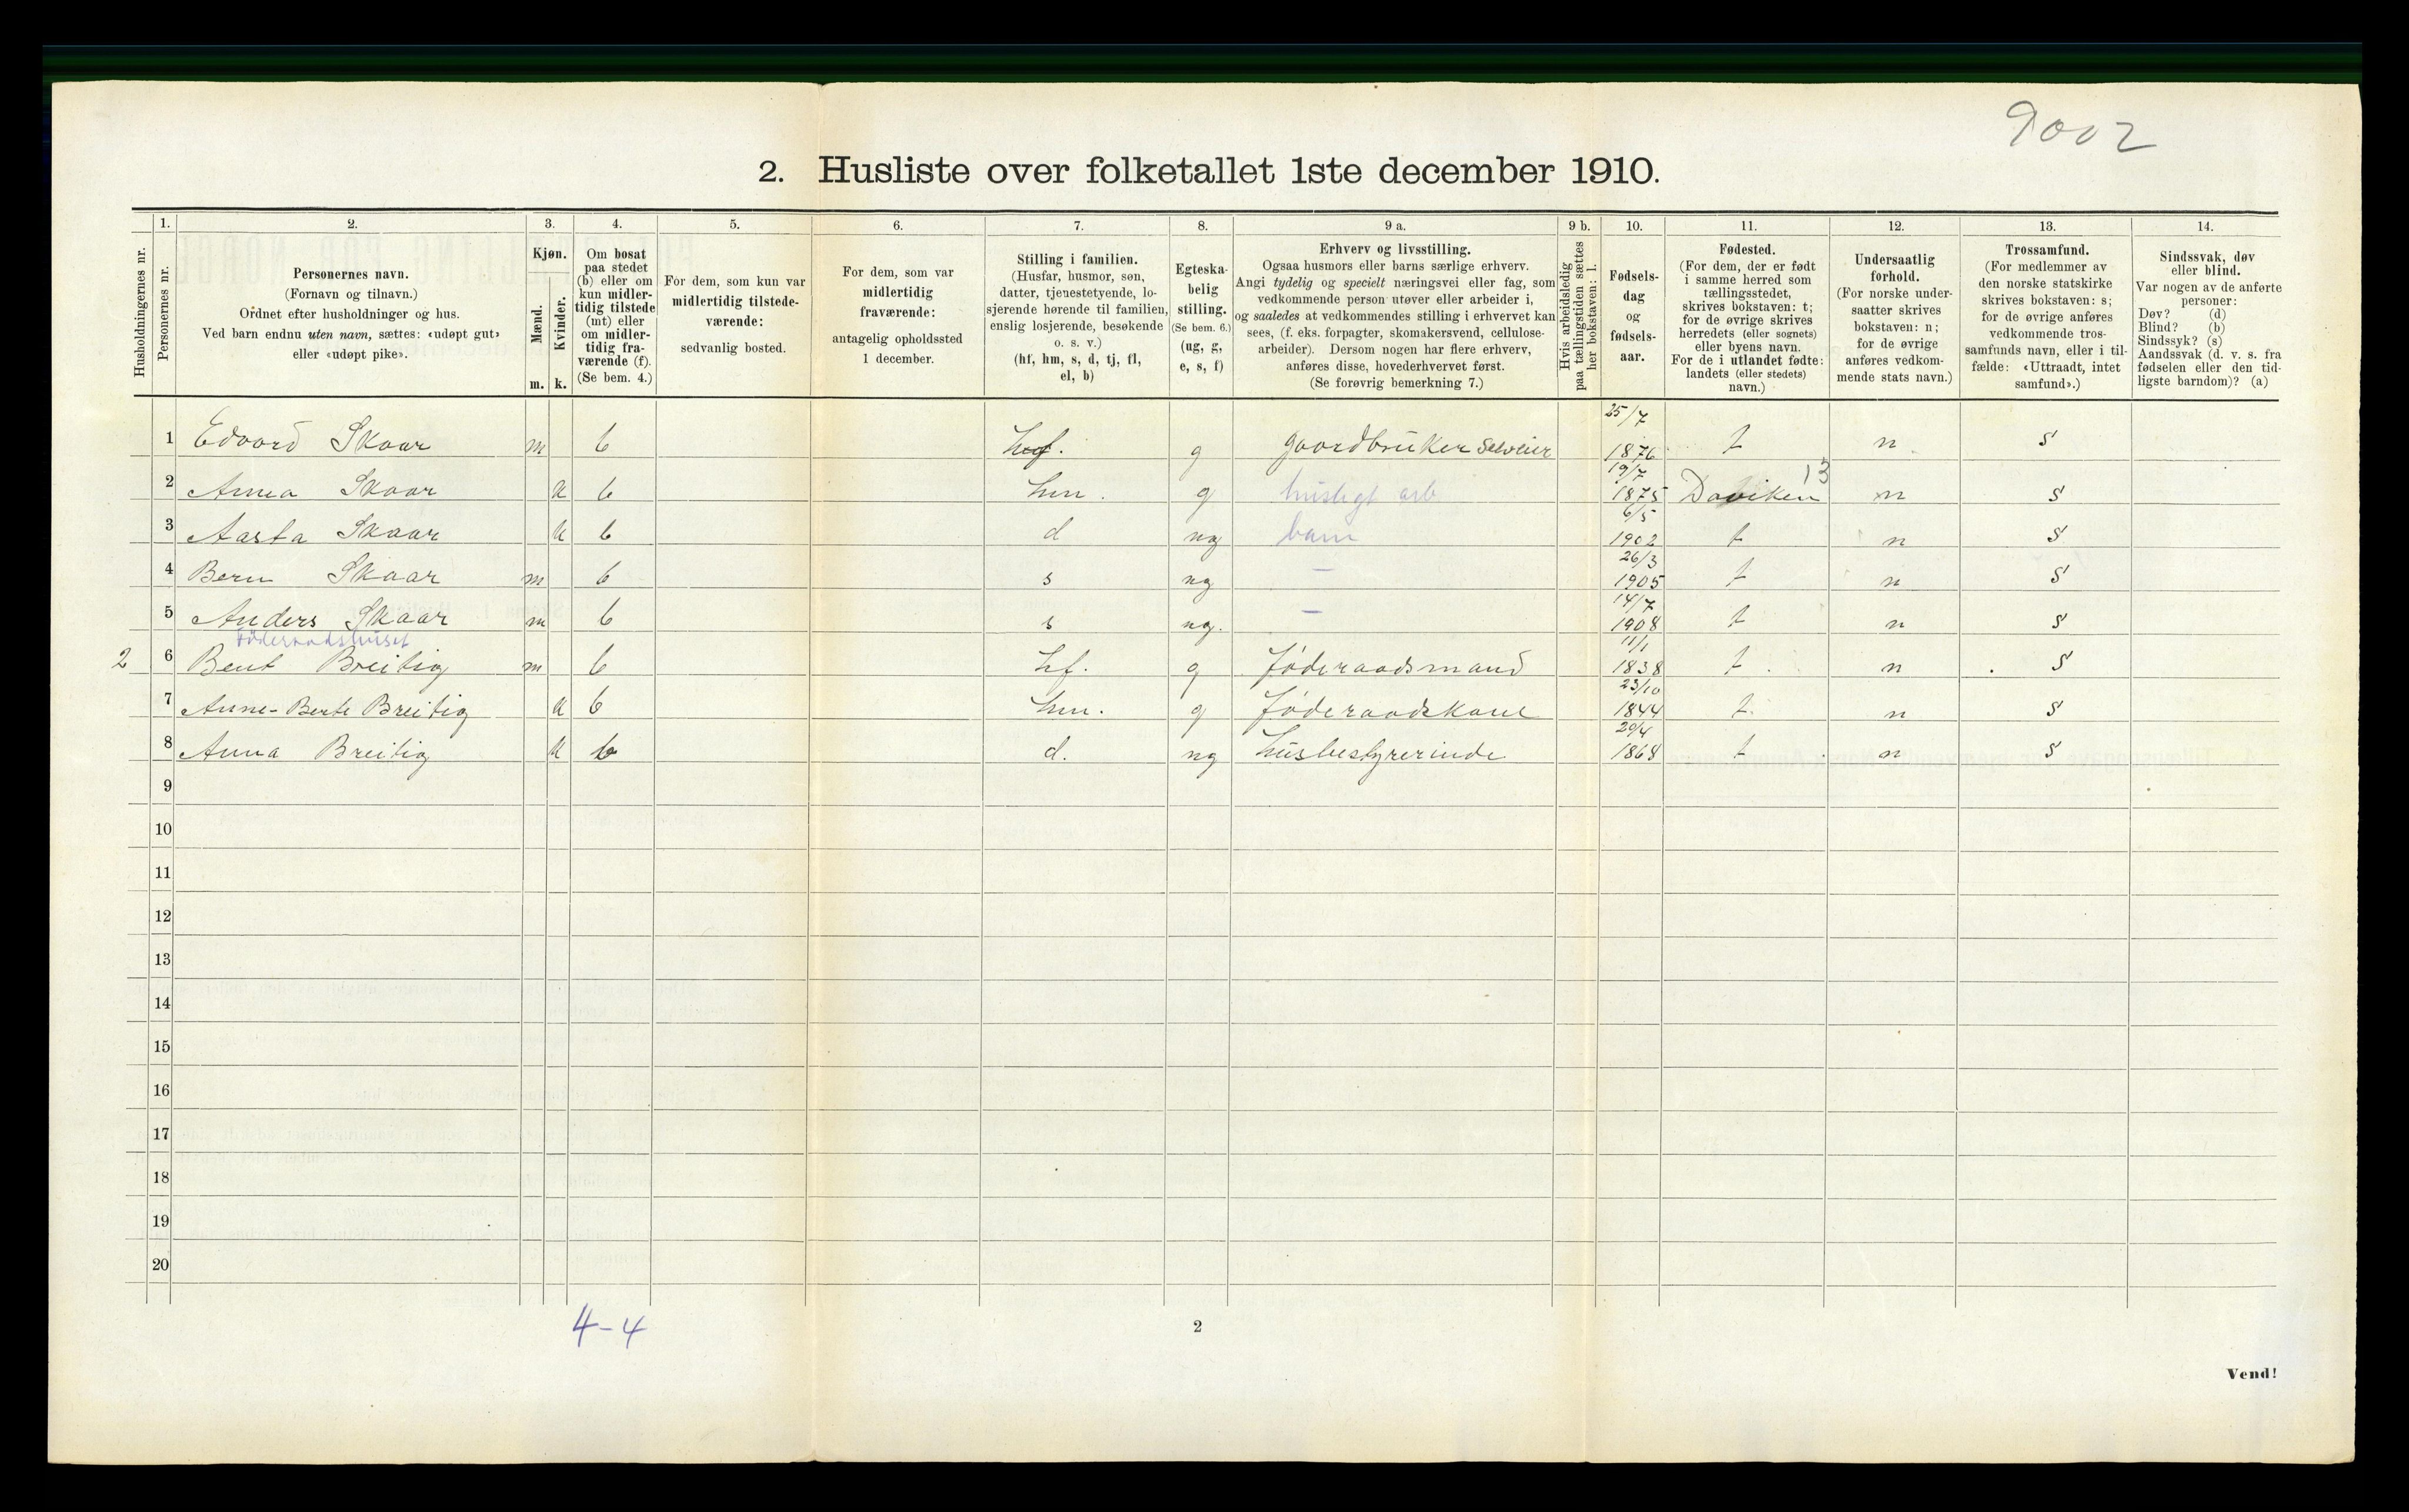 9002
2. Husliste over folketallet 1ste december 1910.
Husholdningernes nr.
1. Personernes nr.
2. Personernes navn.
(Fornavn og tilnavn.)
Ordnet efter husholdninger og hus.
Ved barn endnu uten navn, sættes: «udøpt gut»
eller «udøpt pike».
3. Kjøn.
Mænd. m.
Kvinder. k.
4. Om bosat
paa stedet
(b) eller om
kun midler-
tidig tilstede
(mt) eller
om midler-
tidig fra-
værende (f).
(Se bem. 4.)
5. For dem, som kun var
midlertidig tilstede-
værende:
sedvanlig bosted.
6. For dem, som var
midlertidig
fraværende:
antagelig opholdssted
1 december.
7. Stilling i familien.
(Husfar, husmor, søn,
datter, tjenestetyende, lo-
sjerende hørende til familien,
enslig losjerende, besøkende
o. s. v.)
(hf, hm, s, d, tj, fl,
el, b)
8. Egteska-
belig
stilling.
(Se bem. 6.)
(ug, g,
e, s, f)
9 a. Erhverv og livsstilling.
Ogsaa husmors eller barns særlige erhverv.
Angi tydelig og specielt næringsvei eller fag, som
vedkommende person utøver eller arbeider i,
og saaledes at vedkommendes stilling i erhvervet kan
sees, (f. eks. forpagter, skomakersvend, cellulose-
arbeider). Dersom nogen har flere erhverv,
anføres disse, hovederhvervet først.
(Se forøvrig bemerkning 7.)
9 b. Hvis arbeidsledig
paa tællingstiden sættes
her bokstaven: l.
10. Fødsels-
dag
og
fødsels-
aar.
11. Fødested.
(For dem, der er født
i samme herred som
tællingsstedet,
skrives bokstaven: t;
for de øvrige skrives
herredets (eller sognets)
eller byens navn.
For de i utlandet fødte:
landets (eller stedets)
navn.)
12. Undersaatlig
forhold.
(For norske under-
saatter skrives
bokstaven: n;
for de øvrige
anføres vedkom-
mende stats navn.)
13. Trossamfund.
(For medlemmer av
den norske statskirke
skrives bokstaven: s;
for de øvrige anføres
vedkommende tros-
samfunds navn, eller i til-
fælde: «Uttraadt, intet
samfund».)
14. Sindssvak, døv
eller blind.
Var nogen av de anførte
personer:
Døv? (d)
Blind? (b)
Sindssyk? (s)
Aandssvak (d. v. s. fra
fødselen eller den tid-
ligste barndom)? (a)
1 Edvard Skaar m b hf. g gaardbruker selveier 25/7 1876 t n s
2 Anna Skaar k b hm. g husligt arb 19/7 1875 Daviken 13 n s
3 Aasta Skaar k b d ug barn 6/5 1902 t n s
4 Bern Skaar m b s ug – 26/3 1905 t n s
5 Anders Skaar m b s ug. – 14/7 1908 t n s
Föderaadshuset
2 6 Bent Breitig m b hf. g föderaadsmand 11/1 1838 t. n s
7 Anne-Berte Breitig k b hm. g föderaadskone 23/10 1844 t. n s
8 Anna Breitig k b d. ug husbestyrerinde 29/4 1868 t n s
9
10
11
12
13
14
15
16
17
18
19
20
4-4
2
Vend!